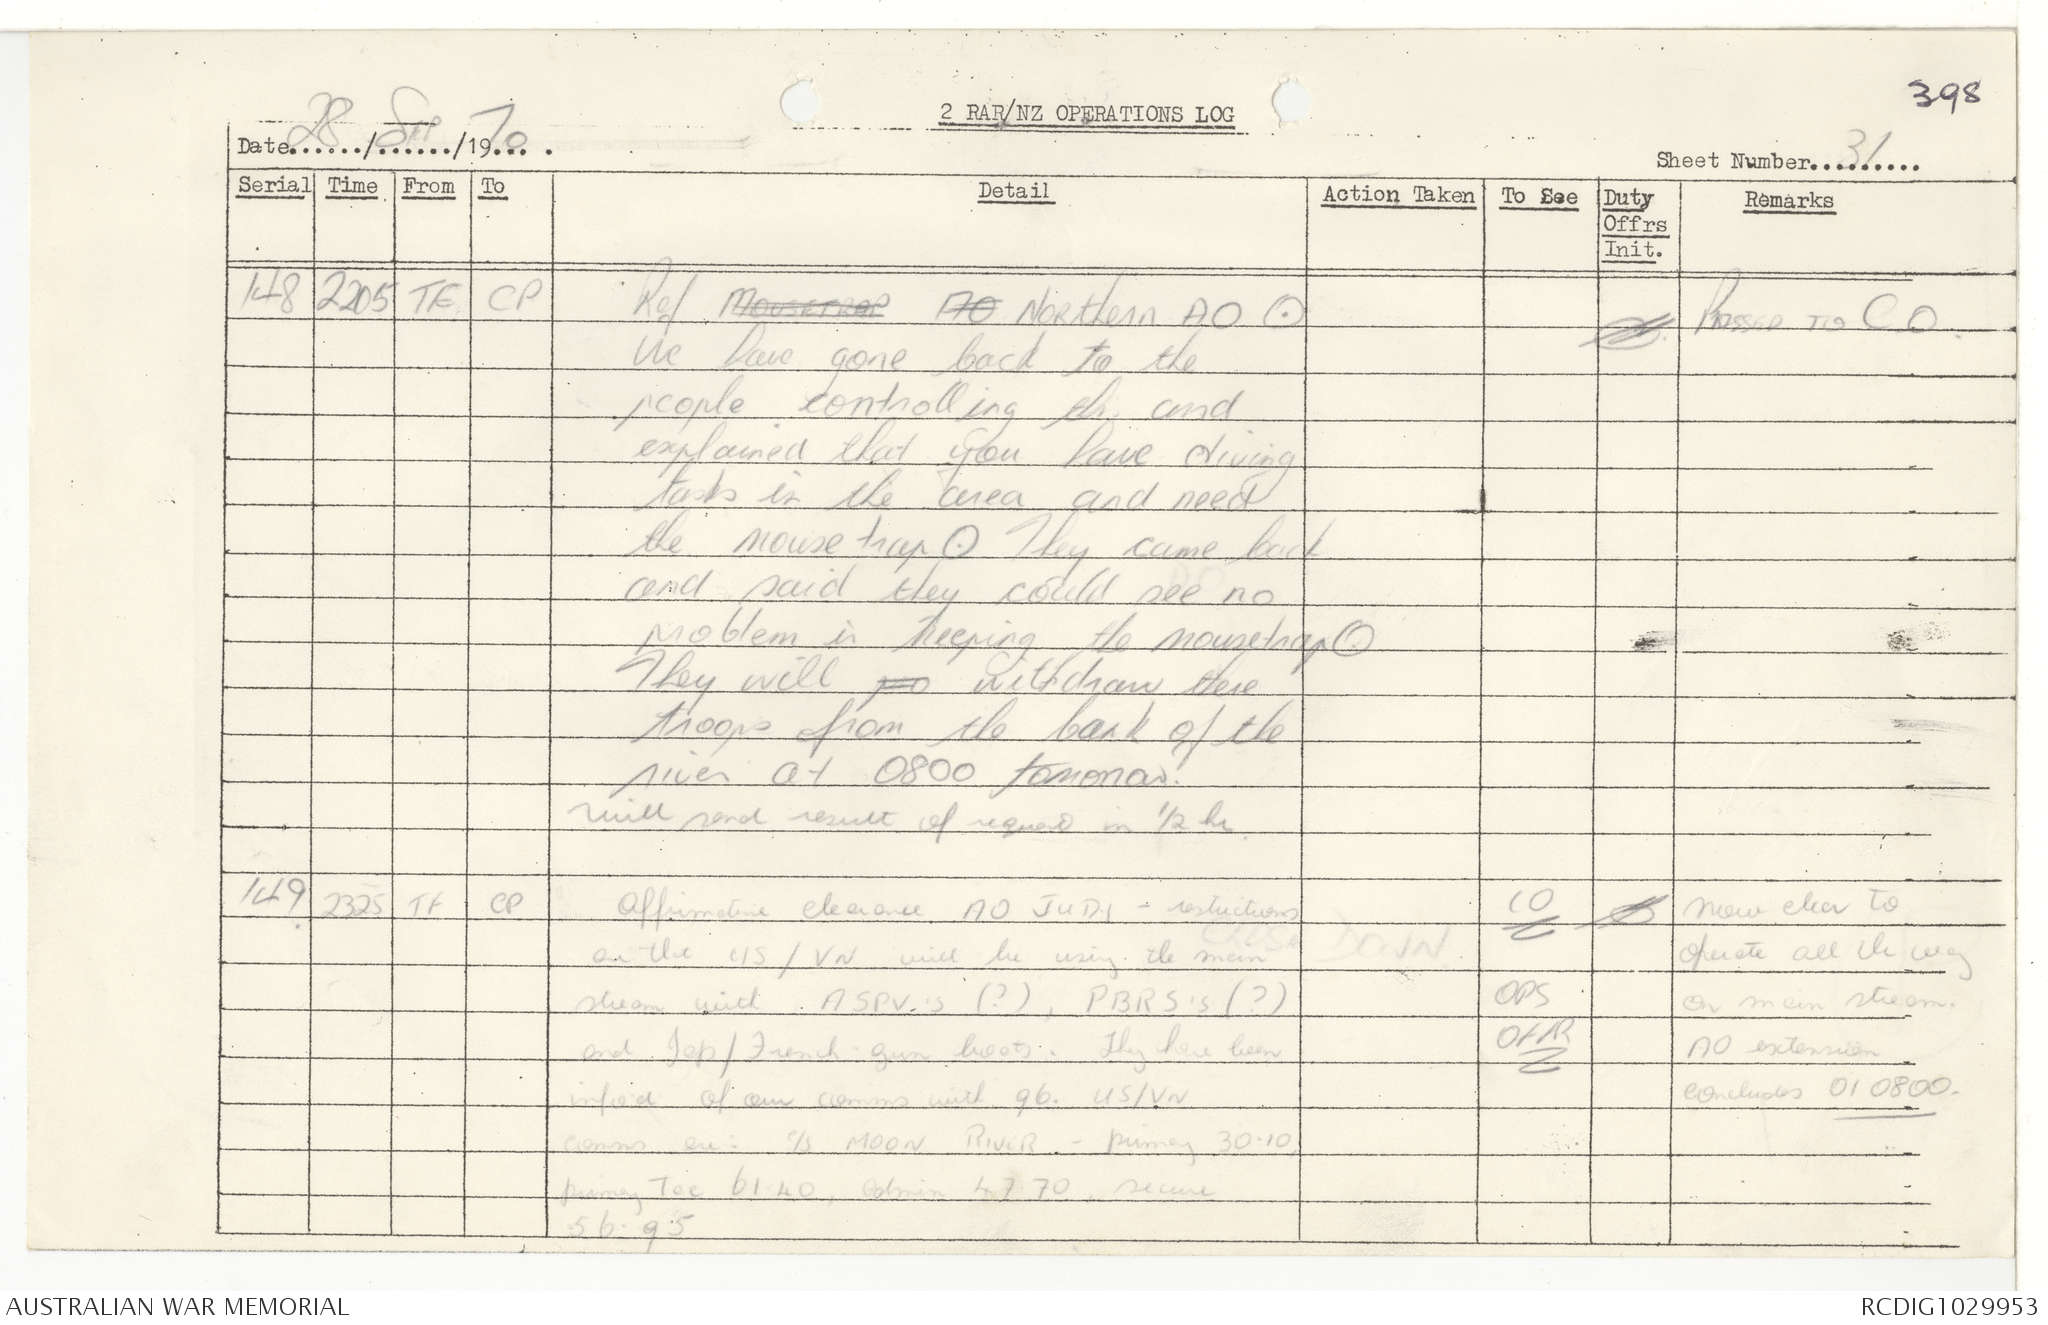 398
2 RAR/NZ OPERATIONS LOG
Date 28 / Sep / 1970
Sheet Number 31
Serial Time From To Detail Action Taken To See Duty Offrs Init. Remarks
148 2205 TF CP Ref Mousetrap AO Northern AO ⊙ Passed to CO
We have gone back to the
people controlling this and
explained that you have diving
tasks in the area and need
the mousetrap ⊙ They came back
and said they could see no
problem in keeping the mousetrap ⊙
They will withdraw there
troops from the bank of the
river at 0800 tomorrow.
Will send result of request in 1/2 hr.
149 2325 TF CP Affirmative clearance AO JUDY - restrictions CO Now clear to
are the US/VN will be using the main operate all the way
CLOSE DOWN
stream with ASPV's (?), PBRS's (?) OPS on main stream.
and Jap/French gun boats. They have been OFFR AO extension
info'd of our comms with 96. US/VN concludes 01 0800.
comms are: c/s MOON RIVER - primary 30.10,
primary Tac 61.40, admin 47.70, secure
56.95
AUSTRALIAN WAR MEMORIAL
RCDIG1029953